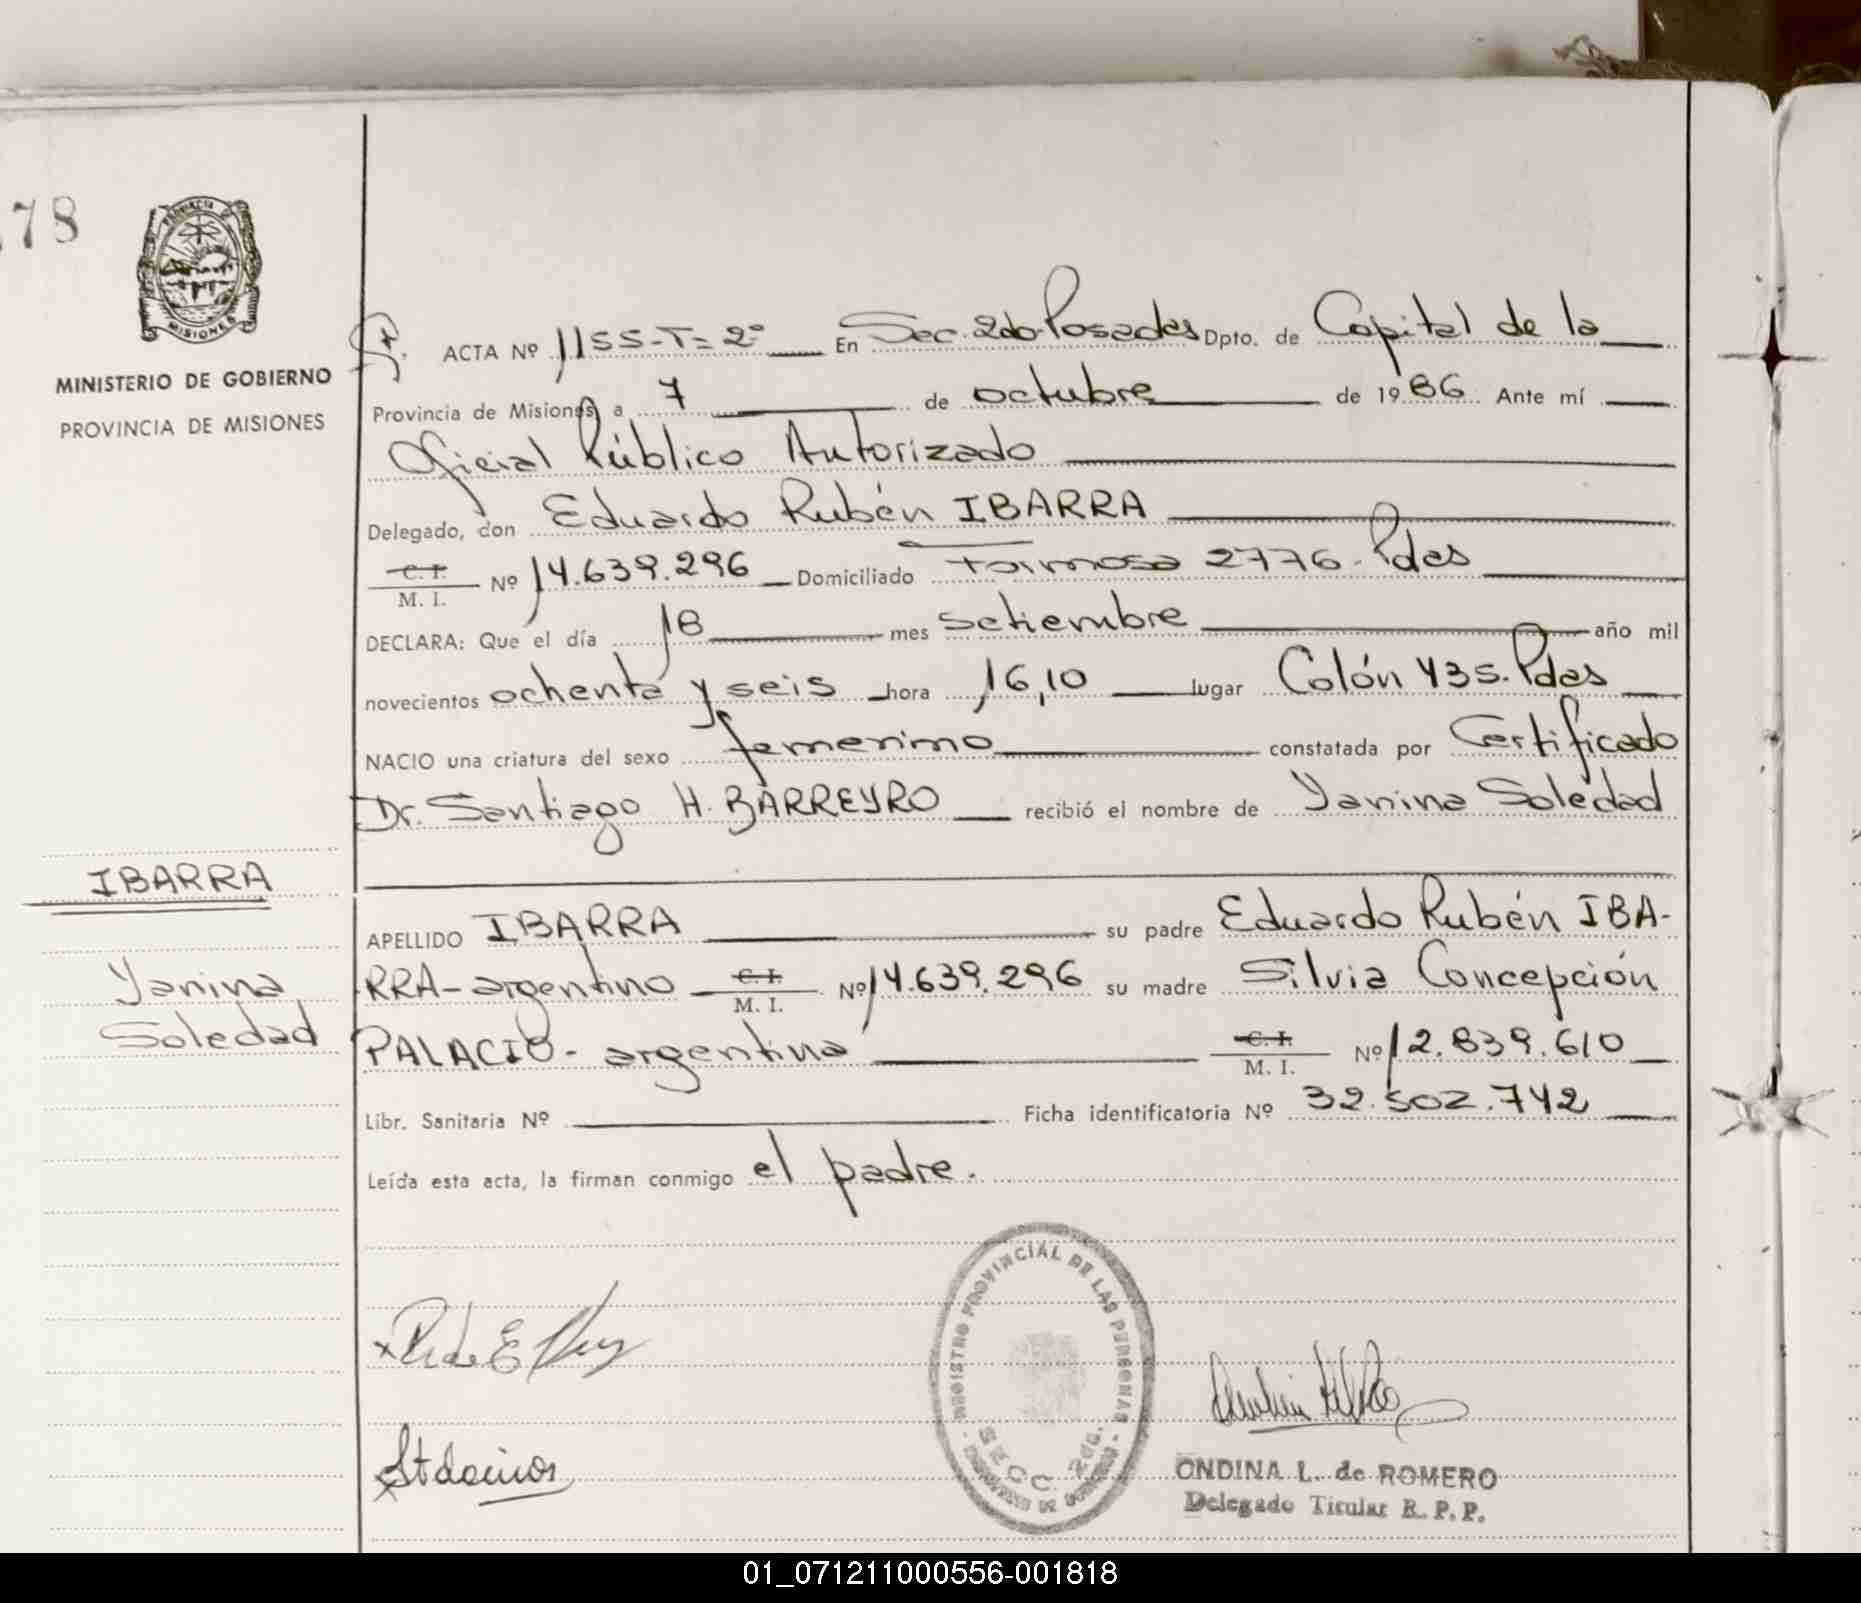 78
PROVINCIA DE
MISIONES
MINISTERIO DE GOBIERNO
PROVINCIA DE MISIONES
ACTA Nº 1155-T=2º En Sec. 2do. Posadas Dpto. de Capital de la
Provincia de Misiones a 7 de octubre de 1986 Ante mí
Oficial Público Autorizado
Delegado, don Eduardo Rubén IBARRA
C. I.
M. I. Nº 14.639.296 Domiciliado Formosa 2776-Pdas
DECLARA: Que el día 18 mes setiembre año mil
novecientos ochenta y seis hora 16,10 lugar Colón 435. Pdas
NACIO una criatura del sexo femenino constatada por Certificado
Dr. Santiago H. BARREYRO recibió el nombre de Yanina Soledad
IBARRA
Yanina
Soledad
APELLIDO IBARRA su padre Eduardo Rubén IBA-
RRA-argentino C. I.
M. I. Nº 14.639.296 su madre Silvia Concepción
PALACIO- argentina C. I.
M. I. Nº 12.839.610
Libr. Sanitaria Nº Ficha identificatoria Nº 32.502.742
Leída esta acta, la firman conmigo el padre.
REGISTRO PROVINCIAL DE LAS PERSONAS
SECC. 2da.
ONDINA L. de ROMERO
Delegado Titular R. P. P.
01_071211000556-001818